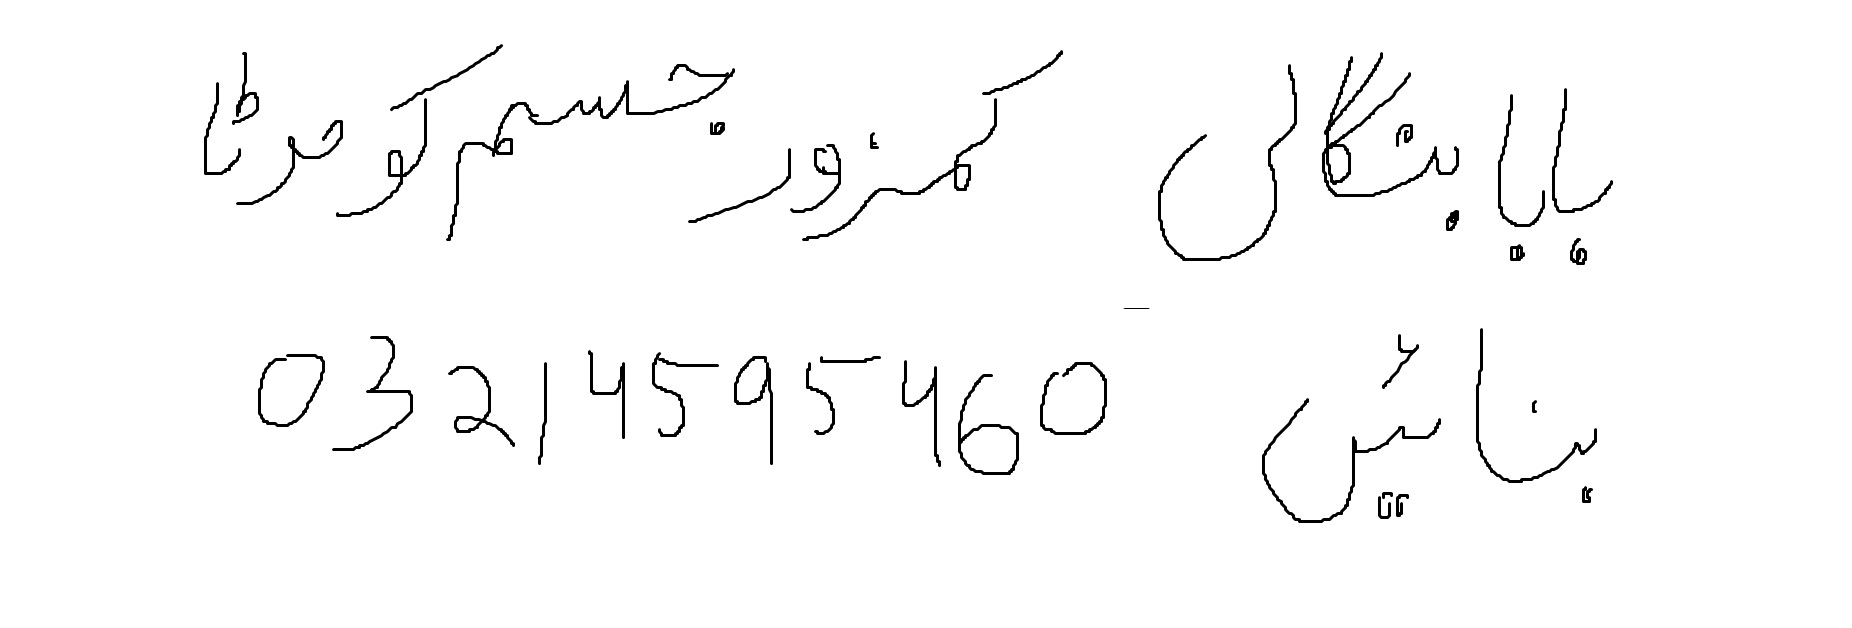 بابا بنگالی کمزور جسم کو موٹا
بنائیں 03214595460